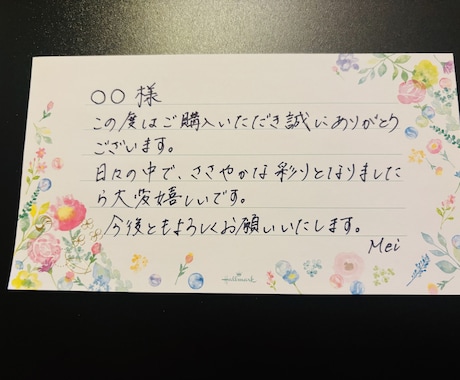 ○○ 様
この度はご購入いただき誠にありがとう
ございます。
日々の中で、ささやかな彩りとなりました
ら大変嬉しいです。
今後ともよろしくお願いいたします。
Mei
Hallmark